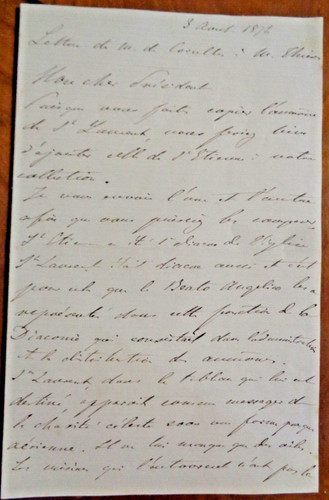 3 Aout 1876
Lettre de M. de à M. Thiers
Mon cher Président
Puisque vous faites copier l'aumône
de St Laurent, vous feriez bien
d'ajouter celle de St Etienne à votre
collection.
Je vous envoie l'une et l'autre
afin que vous puissiez les comparer
St Etienne a été 1er diacre de l'Eglise
St Laurent était diacre aussi et c'est
pour cela que le Beato Angelico les a
représentés dans cette fonction de la
Diaconie qui consistait dans l'administration
et la distribution des aumônes.
St Laurent dans le tableau qui lui est
destiné apparait comme messager de
la charité céleste sous une forme presque
aérienne. Il ne lui manque que des ailes.
Les qui l'entourent n'ont pas le